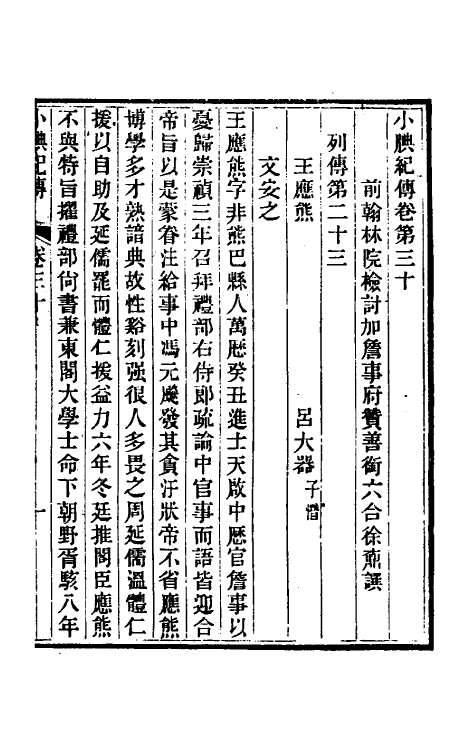 小腆紀傳卷第三十
前翰林院檢討加詹事府贊善銜六合徐鼒譔
列傳第二十三
王應熊　呂大器子潛
文安之
王應熊字非熊巴縣人萬歷癸丑進士天啟中歷官詹事以
憂歸崇禎三年召拜禮部右侍郎疏論中官事而語皆迎合
帝旨以是蒙眷注給事中馮元飈發其貪汙狀帝不省應熊
博學多才熟諳典故性谿刻强很人多畏之周延儒溫體仁
援以自助及延儒罷而體仁援益力六年冬廷推閣臣應熊
不與特旨擢禮部尙書兼東閣大學士命下朝野胥駭八年
小腆紀傳　卷三十　一